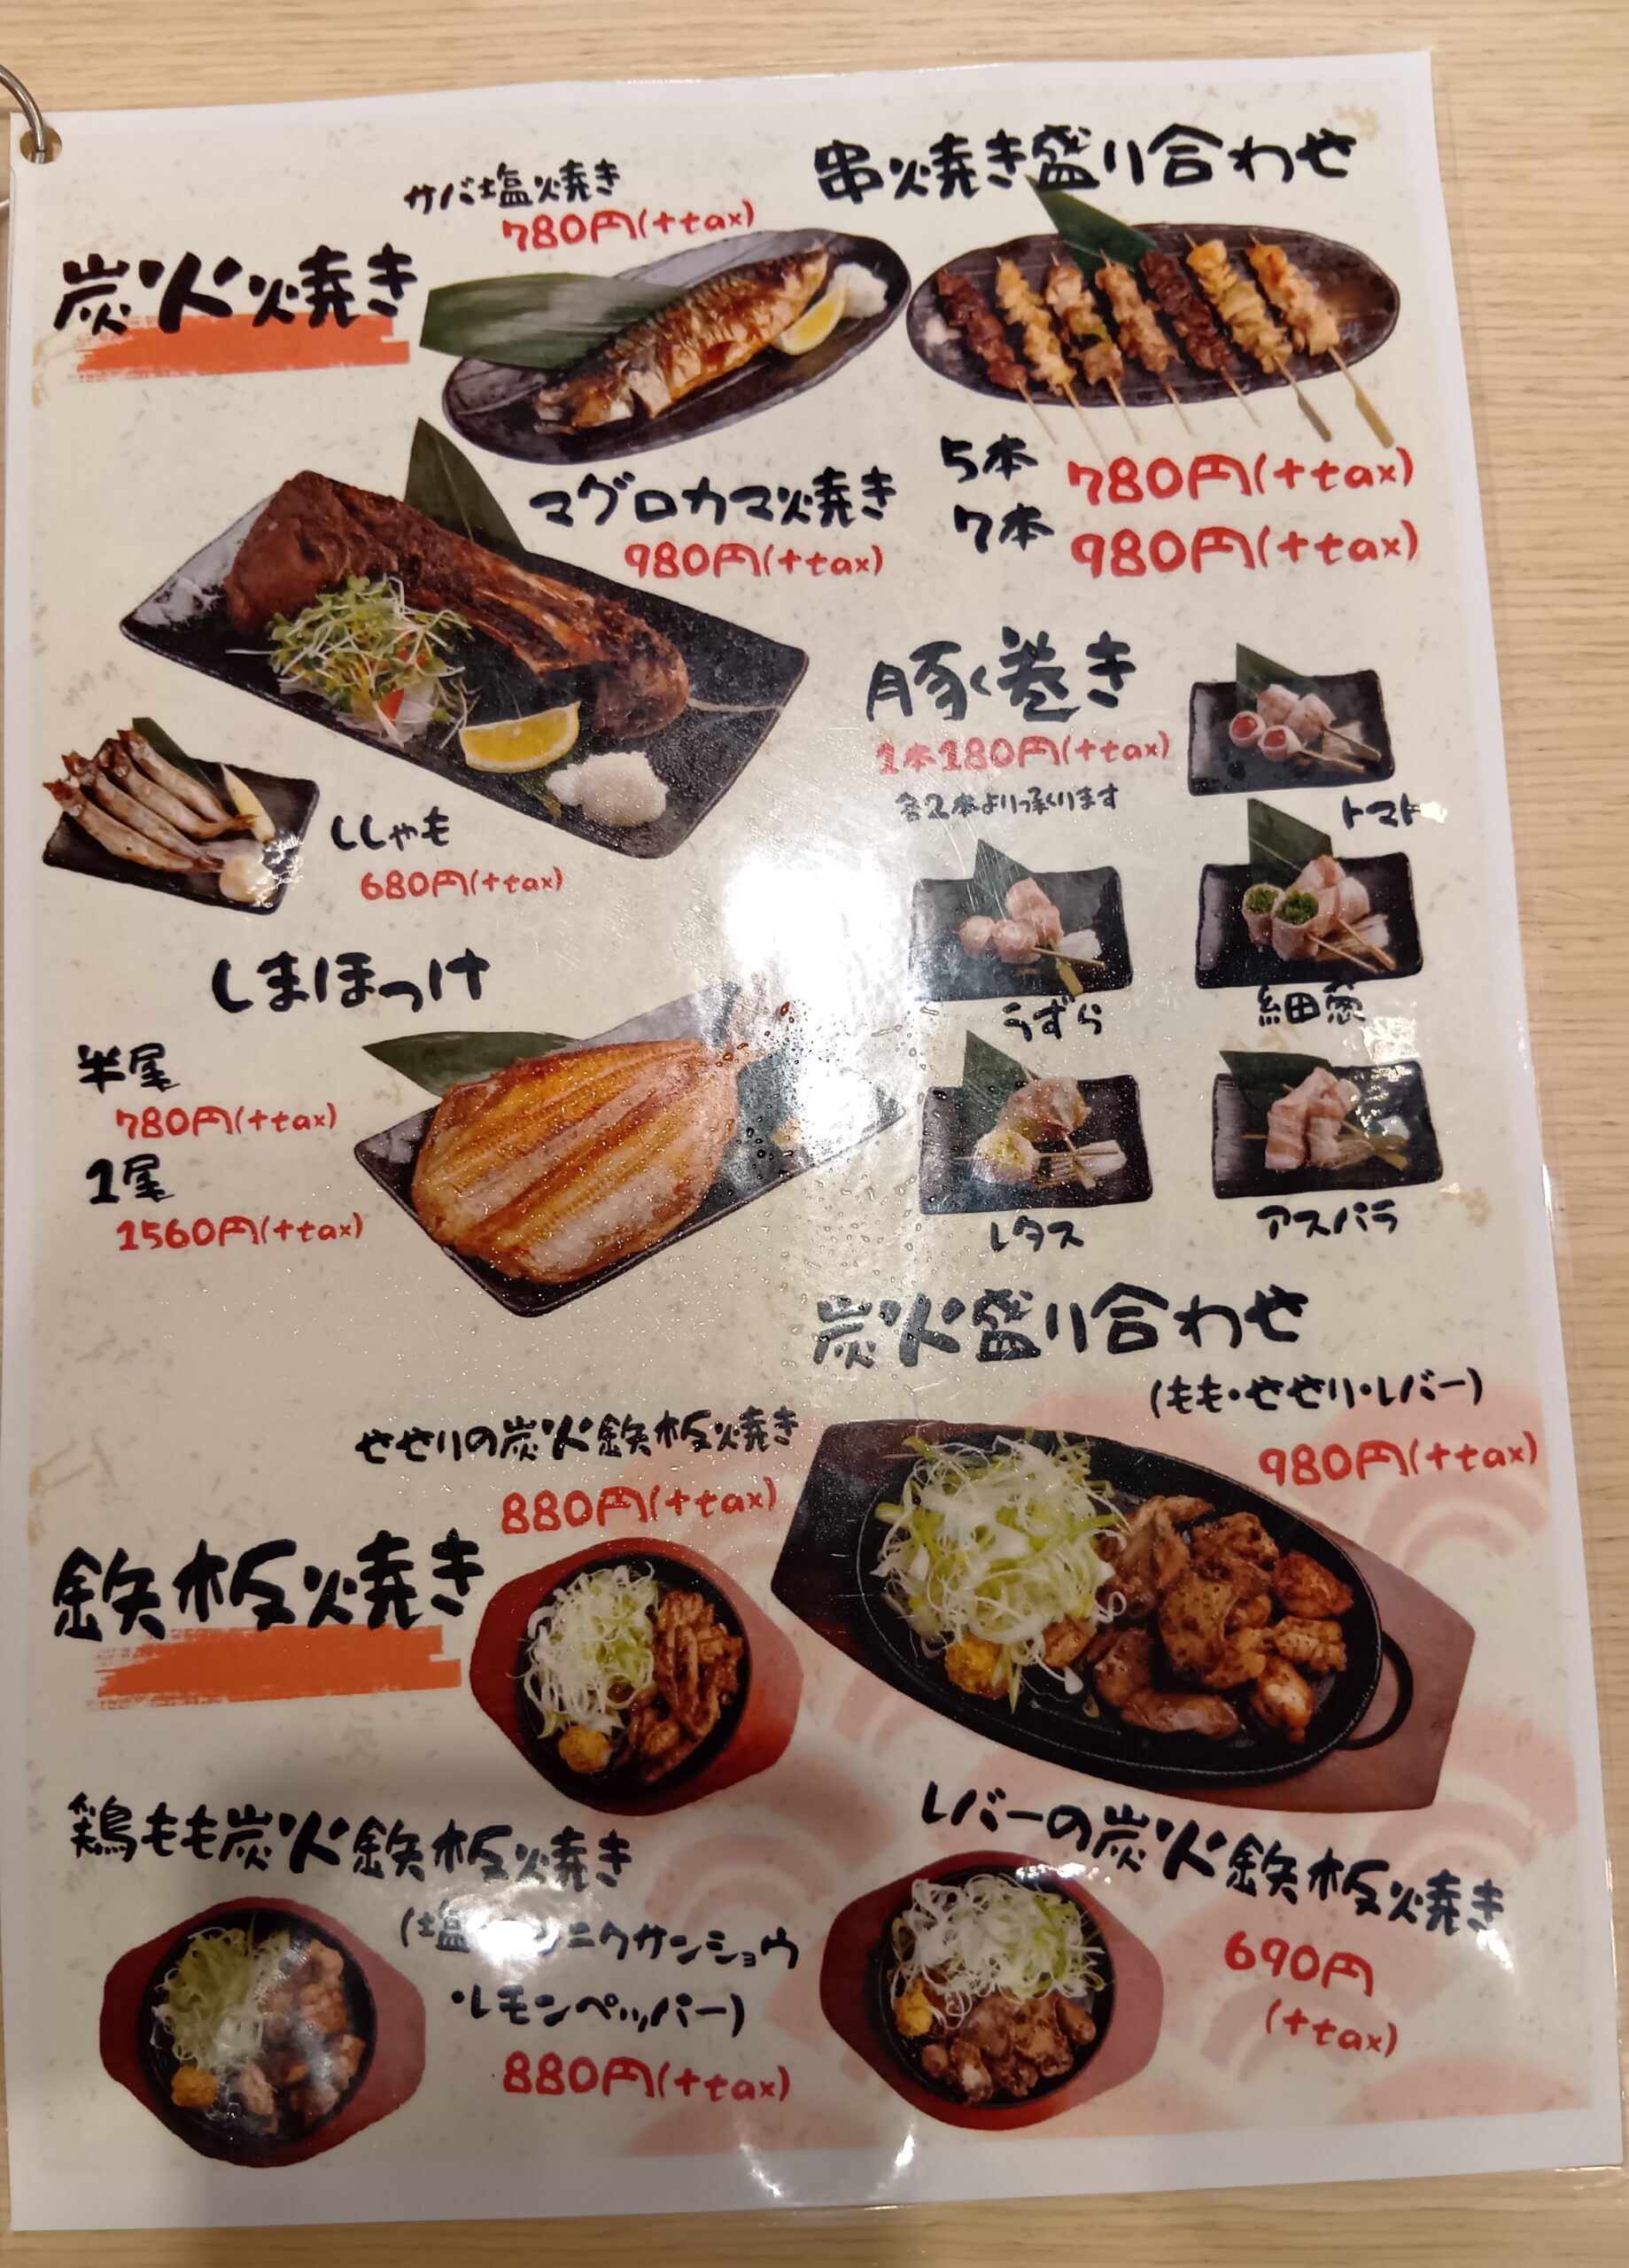 炭火焼き
サバ塩焼き
780円(+tax)
串焼き盛り合わせ
5本 780円(+tax)
7本 980円(+tax)
マグロカマ焼き
980円(+tax)
ししゃも
680円(+tax)
豚く巻き
1本180円(+tax)
各2本より承ります
トマト
うずら
細葱
レタス
アスパラ
しまほっけ
半尾
780円(+tax)
1尾
1560円(+tax)
炭火盛り合わせ
(もも・せせり・レバー)
980円(+tax)
鉄板焼き
せせりの炭火鉄板焼き
880円(+tax)
鶏もも炭火鉄板焼き
(塩 ニクサンショウ
・レモンペッパー)
880円(+tax)
レバーの炭火鉄板焼き
690円
(+tax)